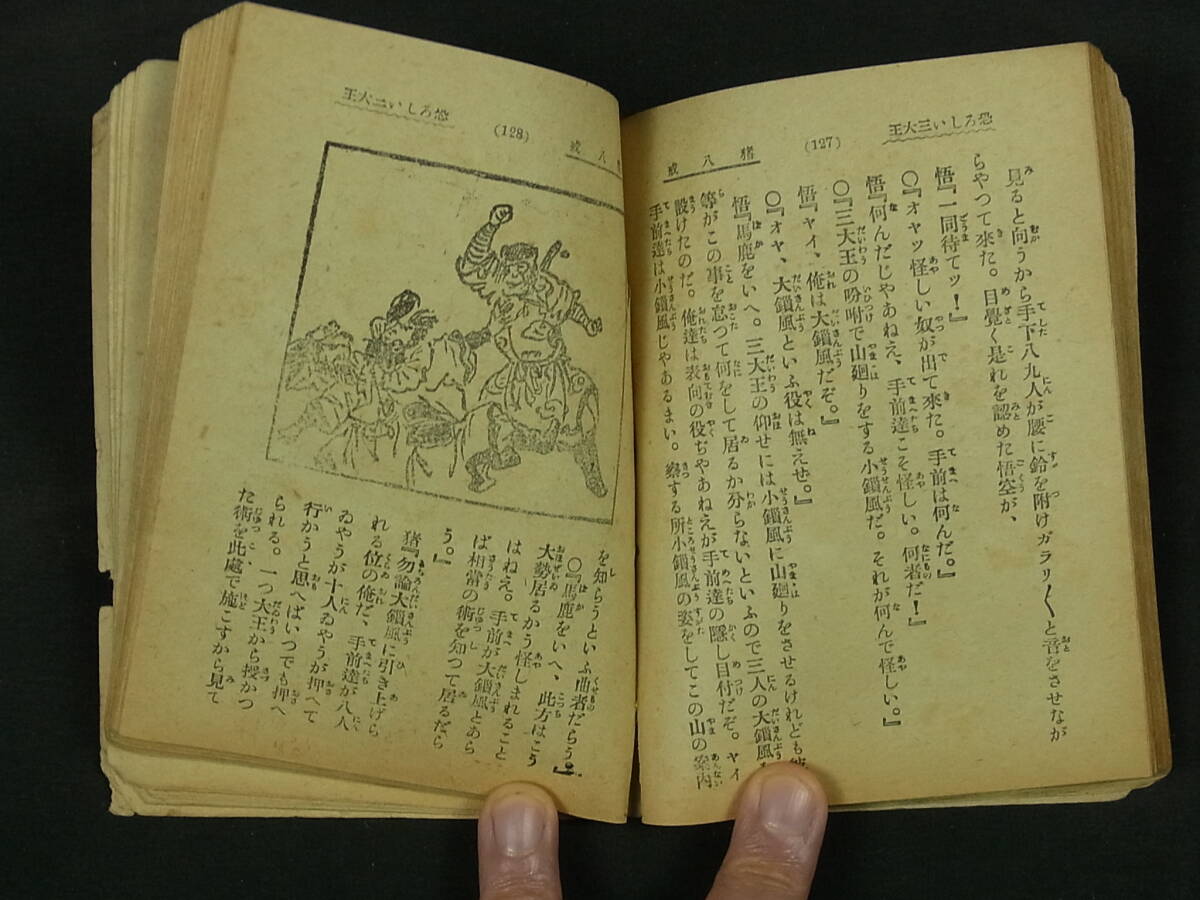 恐ろしい三大王
(127)
猪八戒
見ると向うから手下八九人が腰に鈴を附けガラリ〳〵と音をさせなが
らやつて來た。目覺く是れを認めた悟空が、
悟『一同待てッ！』
〇『オヤッ怪しい奴が出て來た。手前は何んだ。』
悟『何んだじやあねえ、手前達こそ怪しい。何者だ！』
〇『三大王の吩咐で山廻りをする小鎖風だ。それが何んで怪しい。』
悟『ヤイ、俺は大鎖風だぞ。』
〇『オヤ、大鎖風といふ役は無えぜ。』
悟『馬鹿をいへ。三大王の仰せには小鎖風に山廻りをさせるけれども
等がこの事を怠つて何をして居るか分らないといふので三人の大鎖風
設けたのだ。俺達は表向の役ぢやあねえが手前達の隱し目付だぞ。ヤイ
手前達は小鎖風じやあるまい。察する所小鎖風の姿をしてこの山の案内
恐ろしい三大王
(128)
八戒
を知らうといふ曲者だらう。』
〇『馬鹿をいへ、此方はこう
大勢居るかう怪しまれること
はねえ。手前が大鎖風とあら
ば相當の術を知つて居るだら
う。』
猪『勿論大鎖風に引き上げら
れる位の俺だ、手前達が八人
ゐやうが十人ゐやうが押へて
行かうと思へばいつでも押へ
られる。一つ大王から授かつ
た術を此處で施こすから見て